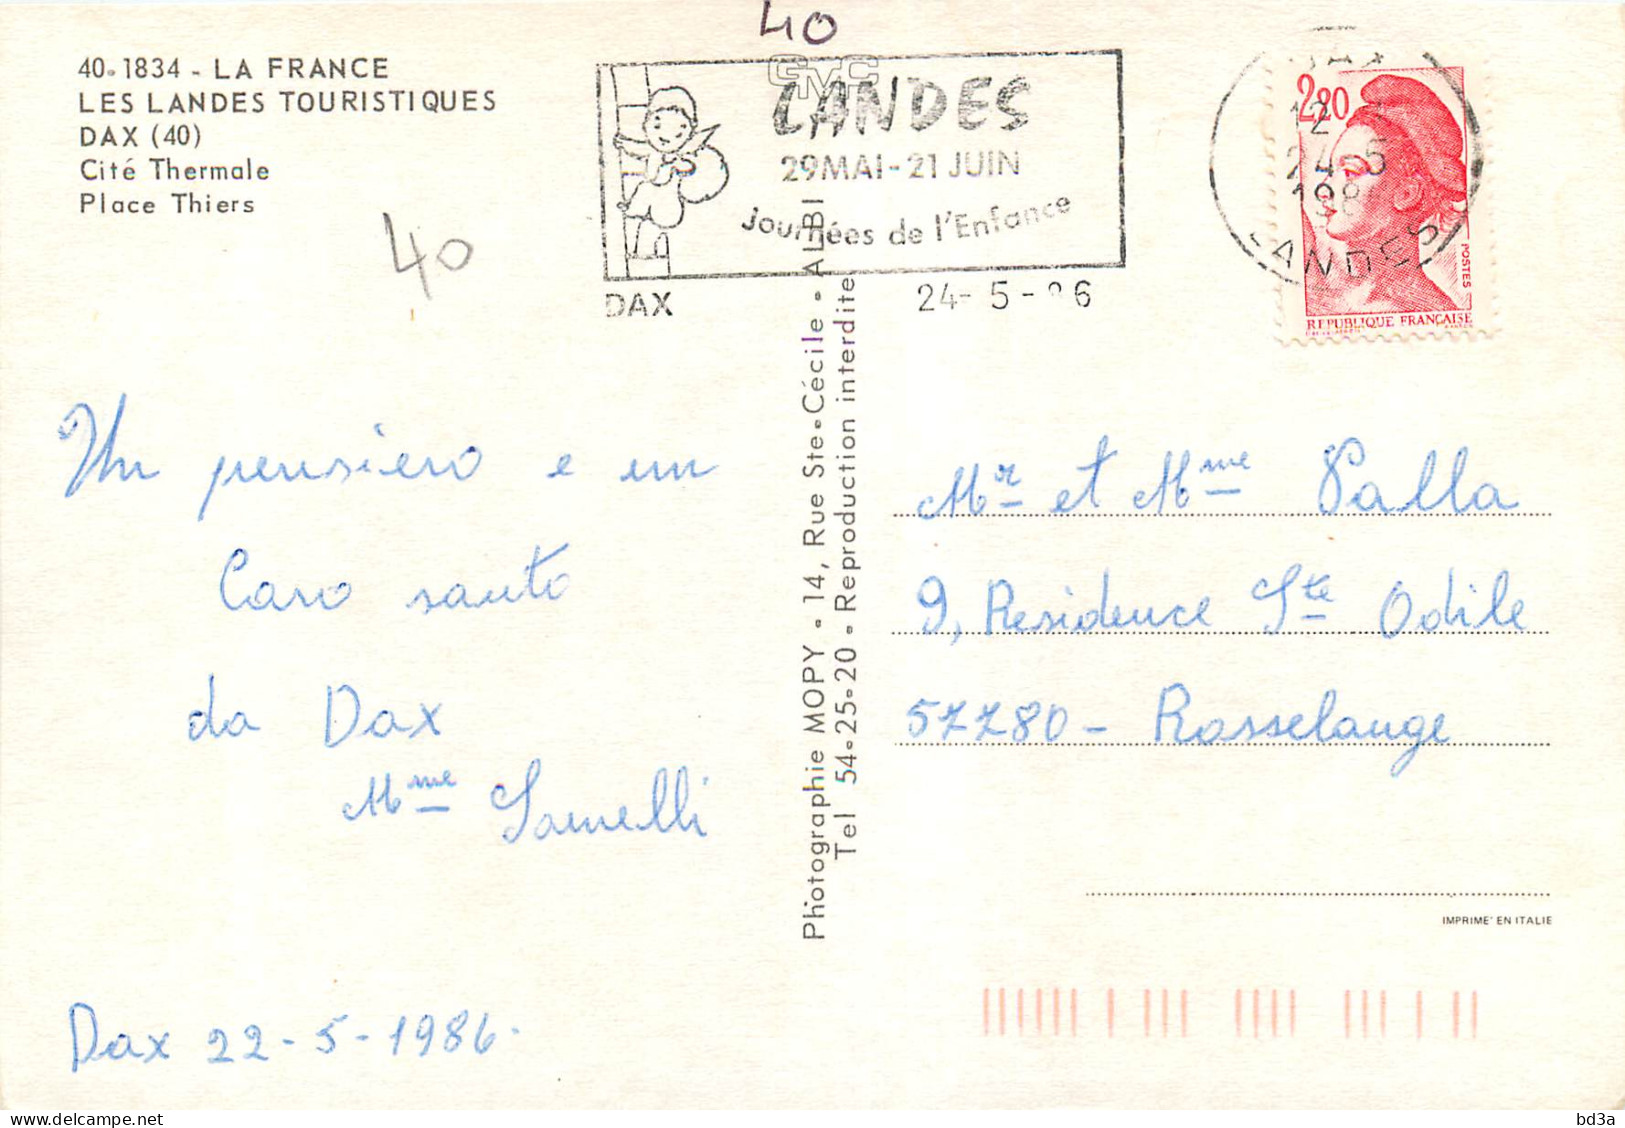 40
40-1834 - LA FRANCE
LES LANDES TOURISTIQUES
DAX (40)
Cité Thermale
Place Thiers
40
GMC
LANDES
29 MAI - 21 JUIN
Journées de l'Enfance
DAX
24- 5 - 86
12
24-5
198
LANDES
2,20
POSTES
REPUBLIQUE FRANÇAISE
Un pensiero e un
Caro saluto
da Dax
Mme
Dax 22-5-1986.
Photographie MOPY - 14, Rue Ste-Cécile - ALBI
Tel 54-25-20 - Reproduction interdite
Mr et Mme Palla
9, Residence Ste Odile
57780 - Rosselange
IMPRIME' EN ITALIE
delcampe.net
bd3a